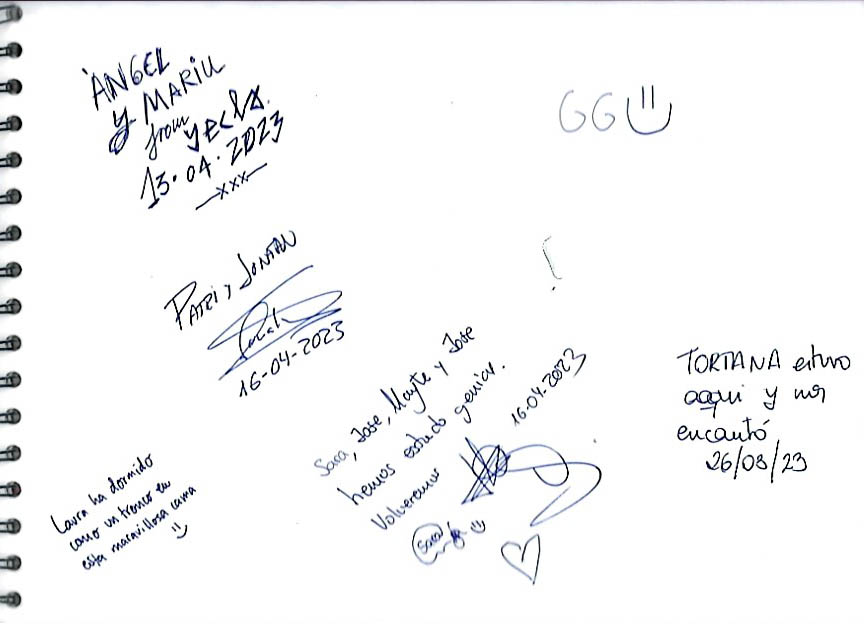 ÀNGEL
y MARILL
from yecla.
13.04.2023
—xxx—
GG
PATRI y JONATAN
16-04-2023
Sara, Jose, Mayte y Jose
hemos estado genial.
Volveremos
16.04.2023
Sara
TORTANA estuvo
aqui y nos
encantó
26/08/23
Laura ha dormido
como un tronco en
esta maravillosa cama